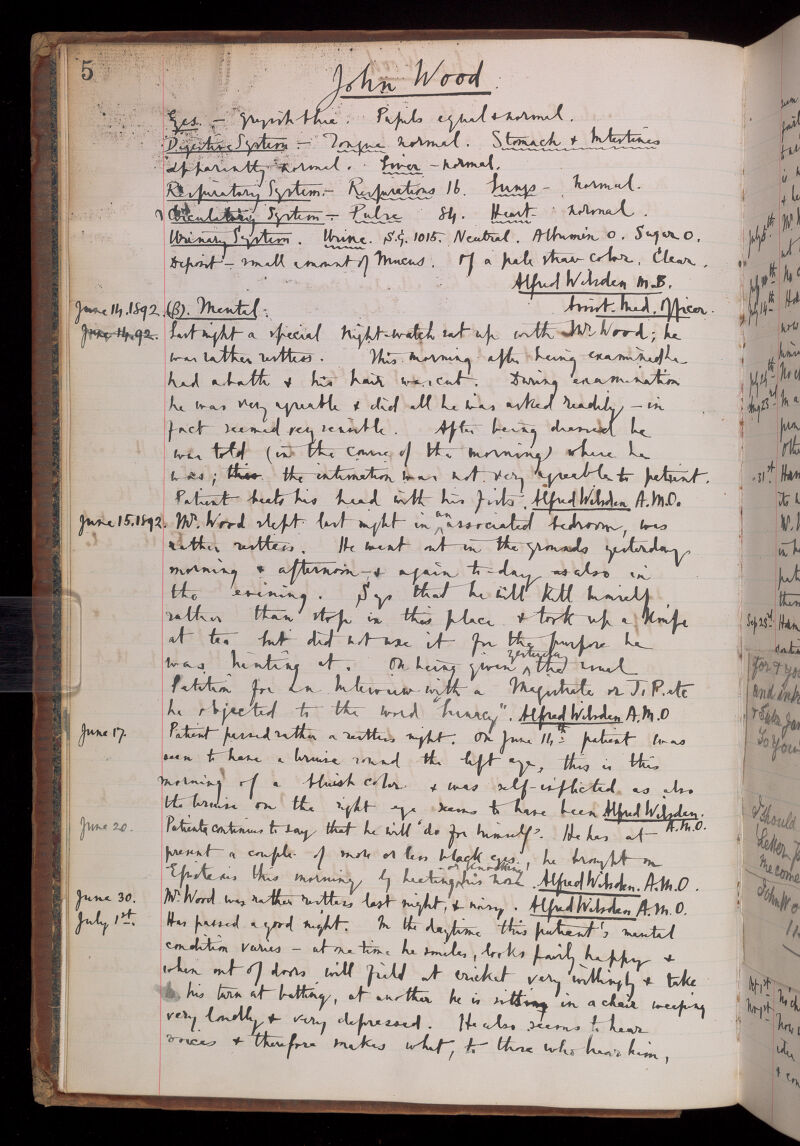 5
John Wood
Eyes. – greyish blue. Pupils equal & normal.
Digestive System – Tongue normal. Stomach & Intestines
apparently normal. Liver – normal.
Respiratory System – Respirations 16. Lungs – normal.
Circulatory System – Pulse 84. Heart normal.
Urinary System. Urine. S.G. 1015. Neutral. Albumin 0. Sugar 0.
Deposit – small amount of Mucus. Of a pale straw color. Clear.
Alfred Wilsden M.B.
Assist. Med. Officer.
June 14. 1892. (B). Mental:
June 14. 92. Last night a special night-watch sat up with Mr. Wood; he
was rather restless. This morning after being examined he
had a bath & his hair was cut. During examination
he was very agreable & did all he was asked readily – in
fact seemed very sensible. After being dressed he
was told (in the course of the morning) where he
was; this the intimation was not very agreeable to patient.
Patient beats his head with his fists. Alfred Wilsden A.M.O.
June 15. 1892. Mr. Wood slept last night in an associated bedroom, was
rather restless. He went out in the grounds yesterday
morning & afternoon & again to-day as also in
the evening. Says that he will kill himself
rather than stop in this place & took up a knife
at tea but did not use it for the purpose he
was hinting at. On being given yesterday the usual
Petition for an Interview with a Magistrate or J.P. etc
he objected to the word "lunacy". Alfred Wilsden A.M.O
June 17. Patient passed rather a restless night. On June 14th patient was
seen to have a bruise round the left eye, this is this
morning of a bluish color & was self-inflicted as also
the bruise on the right eye seems to have been Alfred Wilsden.
A.M.O.
June 20. Patient continues to say that he will "do for himself". He has at
present a couple of more or less black eyes, he brought on
Epistaxis this morning by beating or knocking his nose. Alfred Wilsden. A.M.O.
June 30. Mr. Wood was rather restless last night, & noisy. Alfred Wilsden A.M.O.
July 1st. Has passed a good night. In the daytime this patient's mental
condition varies – at one time he smiles, looks fairly happy &
when out of doors will field at cricket very willingly & take
his turn at batting, at another he is sitting in a chair weeping
very loudly & very depressed. He also seems to hear
voices & therefore makes what, to those who hear him,
July 5th
July 10th
July 14th
July 24th
Aug 23rd
31st
Sep 23rd
for & you
I should
Letter
me come
John Wo
Oct 1st
Nov 1st